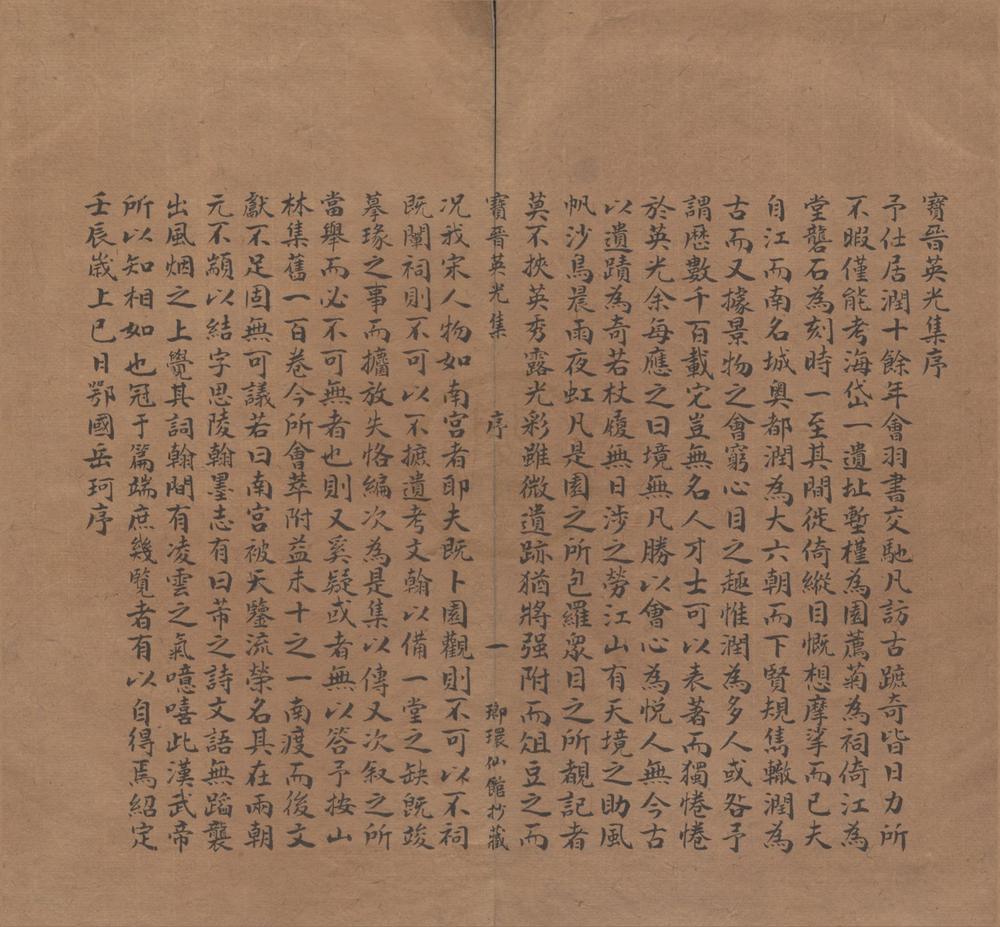 寶晉英光集序
予仕居潤十餘年會羽書交馳凡訪古蹠奇皆日力所
不暇僅能考海岱一遺址塹槿為園薦菊為祠倚江為
堂礱石為刻時一至其間徙倚縱目慨想摩挲而已夫
自江而南名城奧都潤為大六朝而下賢規雋轍潤為
古而又據景物之會窮心目之趣惟潤為多人或咎予
謂歷數千百載完豈無名人才士可以表著而獨惓惓
於英光余每應之曰境無凡勝以會心為悅人無今古
以遺蹟為奇若杖履無日涉之勞江山有天境之助風
帆沙鳥晨雨夜虹凡是園之所包羅眾目之所覩記者
莫不挾英秀露光彩雖微遺跡猶將强附而俎豆之而
寶晉英光集 序 一 瑯環仙館抄藏
況我宋人物如南宮者耶夫既卜園觀則不可以不祠
既闡祠則不可以不摭遺考文翰以備一堂之缺既竣
摹瑑之事而攟放失恪編次為是集以傳又次叙之所
當舉而必不可無者也則又奚疑或者無以答予按山
林集舊一百卷今所會萃附益未十之一南渡而後文
獻不足固無可議若曰南宮被天鑒流榮名其在兩朝
元不顓以結字思陵翰墨志有曰芾之詩文語無蹈襲
出風烟之上覺其詞翰間有凌雲之氣噫嘻此漢武帝
所以知相如也冠于篇端庶幾覽者有以自得焉紹定
壬辰歲上巳日鄂國岳珂序